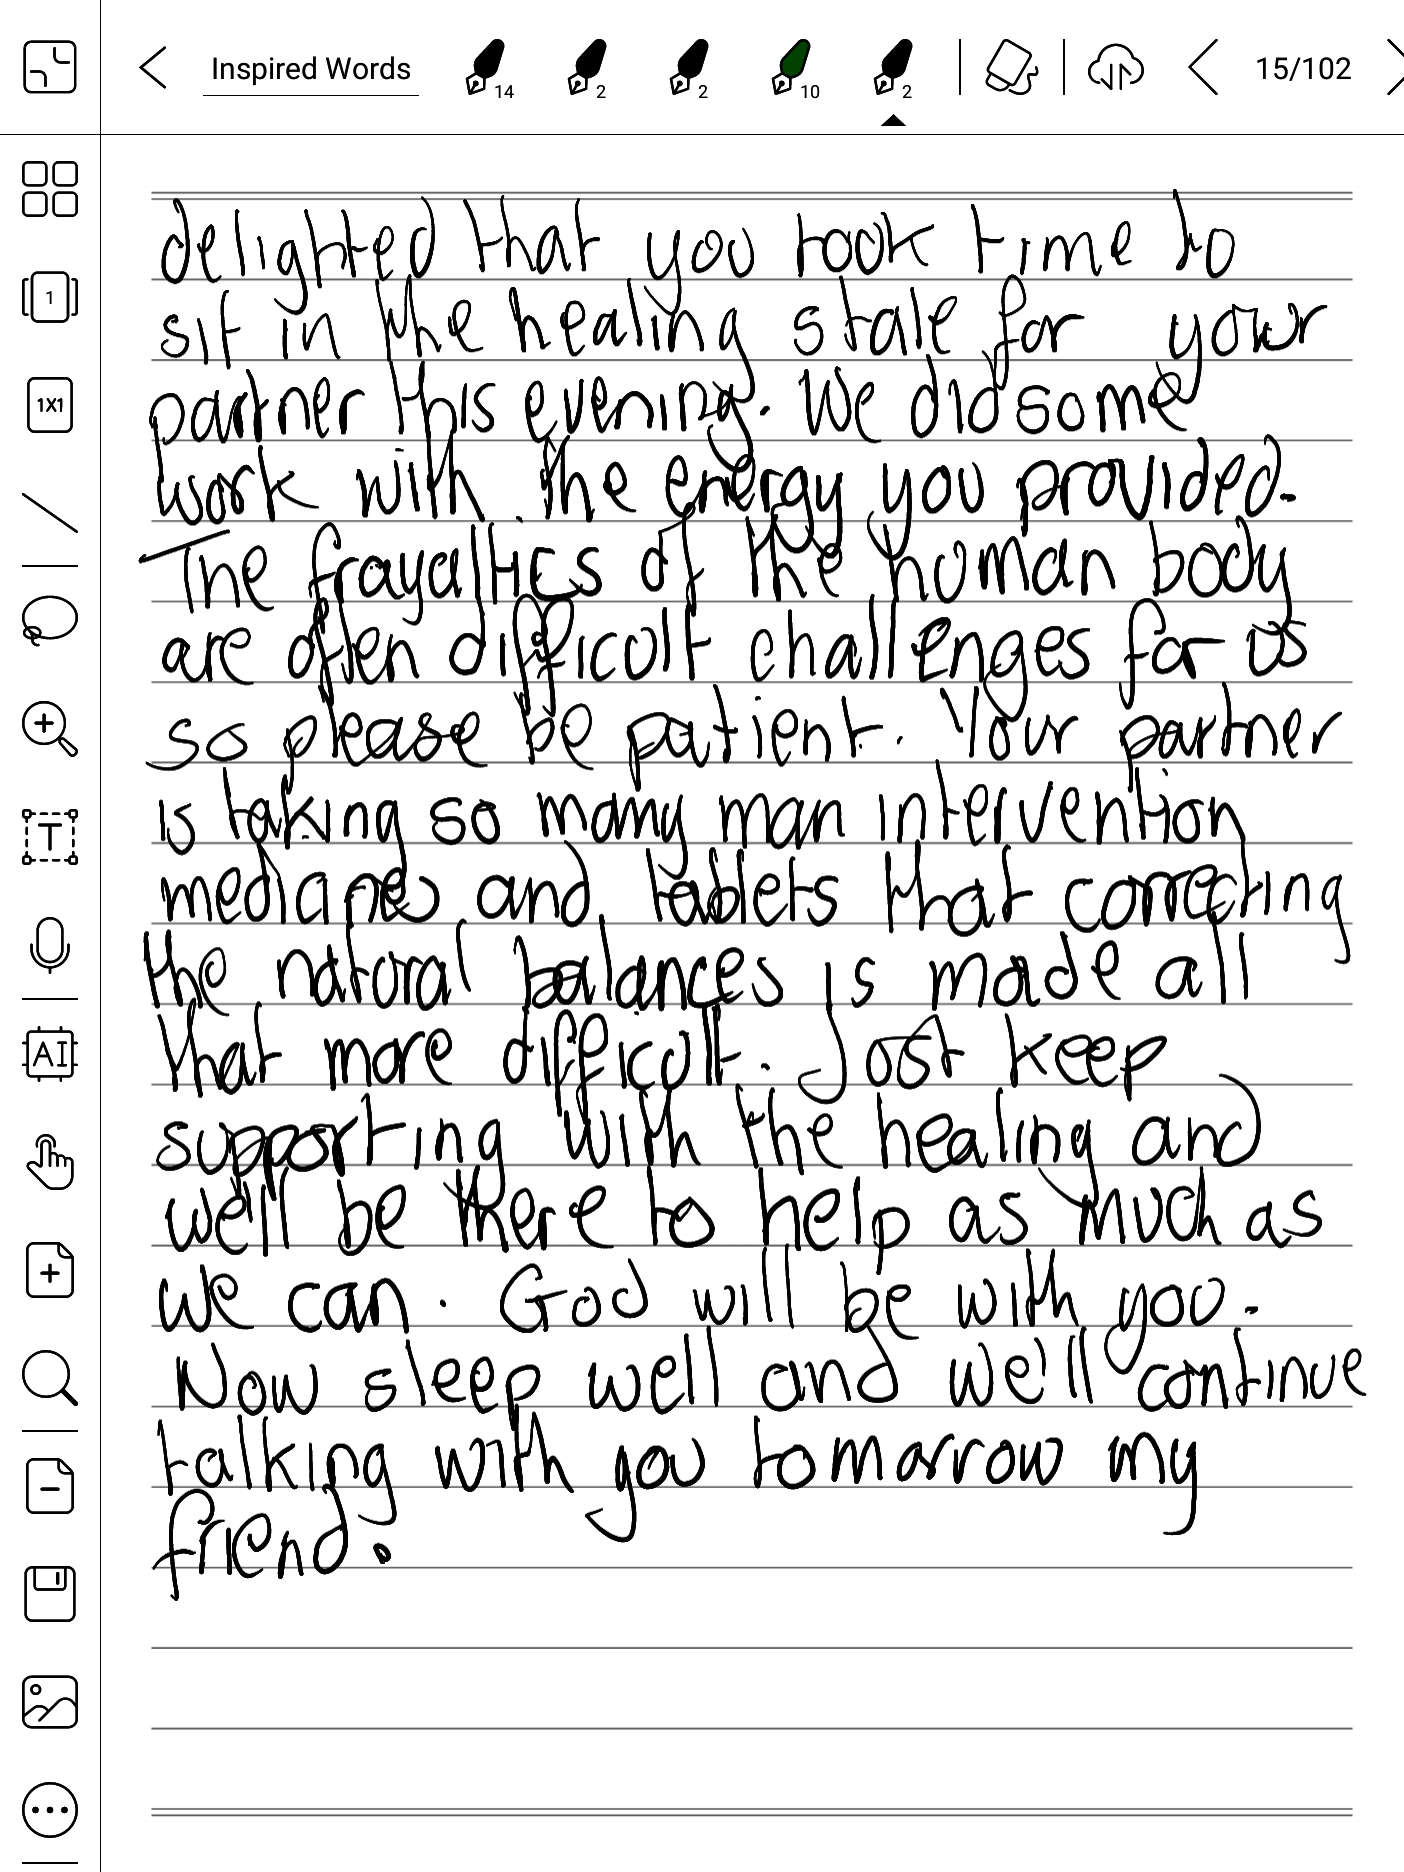 Inspired Words
14
2
2
10
2
15/102
1
1X1
T
AI
delighted that you took time to
sit in the healing state for your
partner this evening. We did some
work with the energy you provided.
The frayalties of the human body
are often difficult challenges for us
so please be patient. Your partner
is taking so many man intervention
medicines and tablets that correcting
the natural balances is made all
that more difficult. Just keep
supporting with the healing and
we'll be there to help as much as
we can. God will be with you.
Now sleep well and we'll continue
talking with you tomorrow my
friend.